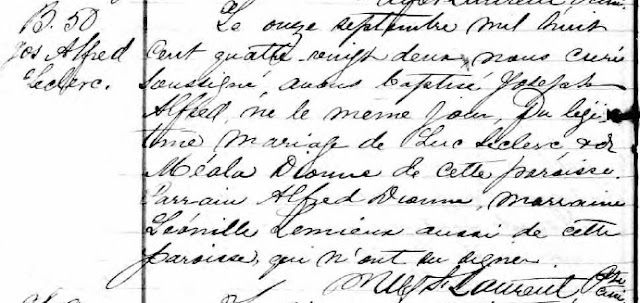 B. 50
Jos Alfred
Leclerc.
Le onze septembre mil huit
cent quatre vingt deux, nous curé
soussigné, avons baptisé Joseph
Alfred, né le même jour, du légi-
time mariage de Luc Leclerc, & de
Méala Dionne de cette paroisse.
Parrain Alfred Dionne, marraine
Léonille Lemieux aussi de cette
paroisse, qui n'ont su signer.
St Laurent Ptre
curé